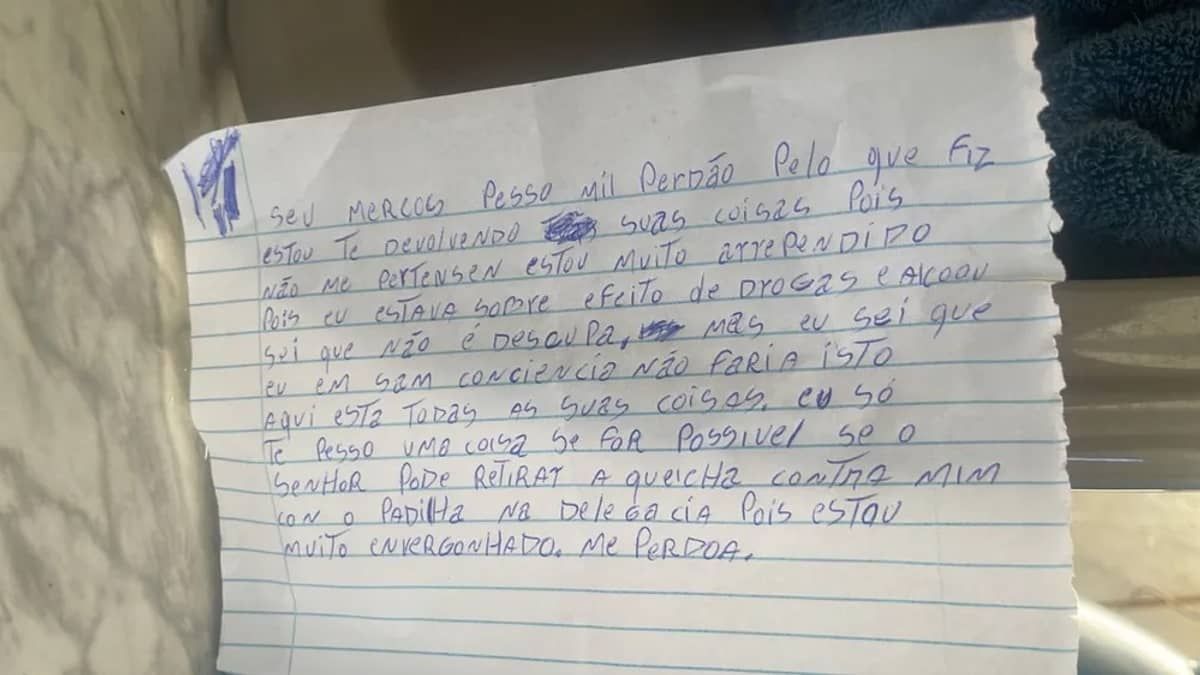 Seu Mercos Pesso mil Perdão Pelo que Fiz
estou Te Devolvendo suas coisas Pois
Não me PerTensen estou muito arrependido
Pois eu estava sobre efeito de Drogas e Alcoou
sei que Não é Descupa, mas eu sei que
eu em sam conciencia Não faria isto
Aqui esta Todas as suas coisas. eu só
Te Pesso uma coisa se for Possivel se o
senhor pode retirar a queicha contra mim
con o Padilha na Delegacia Pois estou
muito envergonhado. me Perdoa.